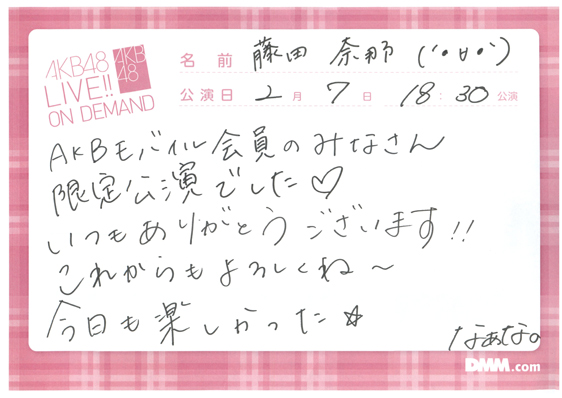 AKB48
LIVE!!
ON DEMAND
AKB
48
名前 藤田 奈那 (´•∀•`)
公演日 2月 7日 18:30 公演
AKBモバイル会員のみなさん
限定公演でした♡
いつもありがとうございます!!
これからもよろしくね〜
今日も楽しかった☆
なぁな。
DMM.com